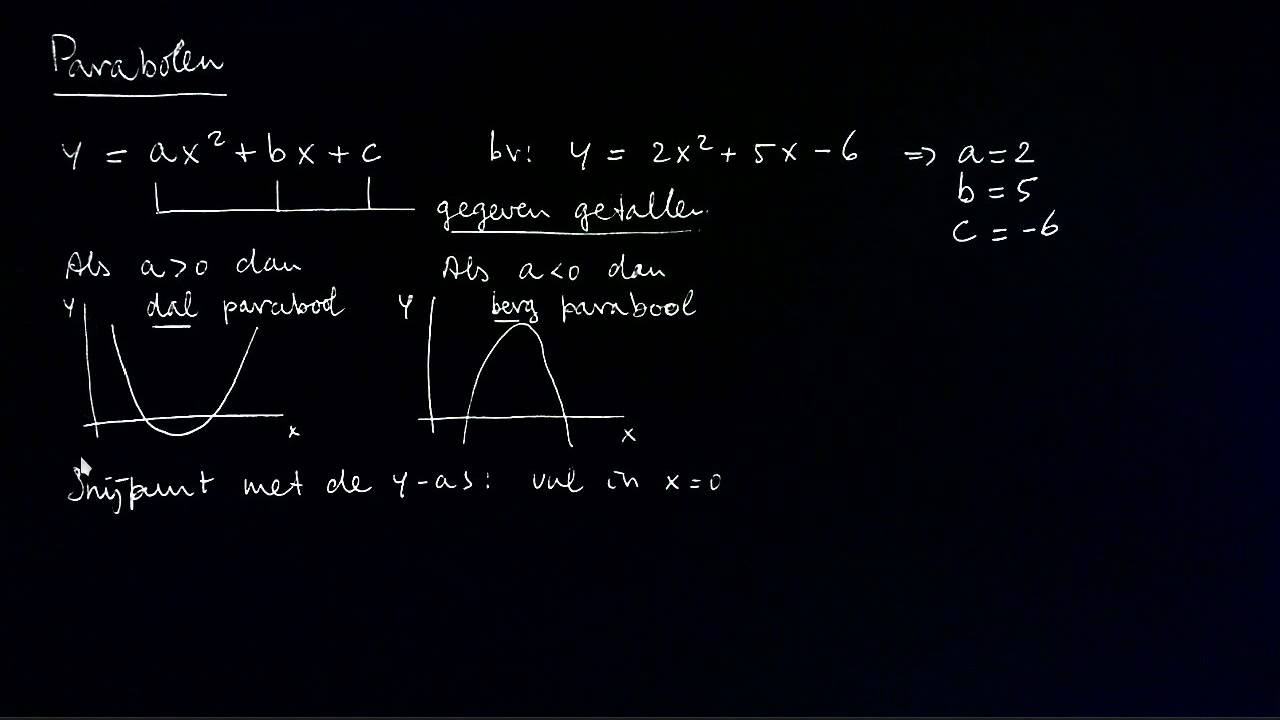 Parabolen
y = ax² + bx + c bv: y = 2x² + 5x - 6 => a = 2
b = 5
c = -6
gegeven getallen
Als a>0 dan
dal parabool
y
x
Als a<0 dan
berg parabool
y
x
Snijpunt met de y-as: vul in x=0